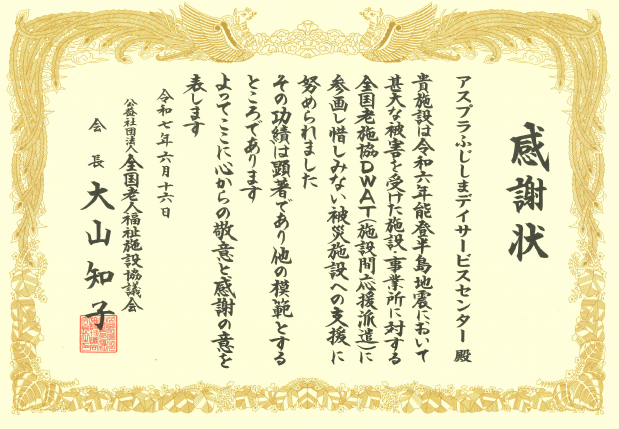 感謝状
アスプラふじしまデイサービスセンター 殿
貴施設は令和六年能登半島地震において
甚大な被害を受けた施設・事業所に対する
全国老施協DWAT(施設間応援派遣)に
参画し惜しみない被災施設への支援に
努められました
その功績は顕著であり他の模範とする
ところであります
よってここに心からの敬意と感謝の意を
表します
令和七年六月十六日
公益社団法人 全国老人福祉施設協議会
会長 大山知子